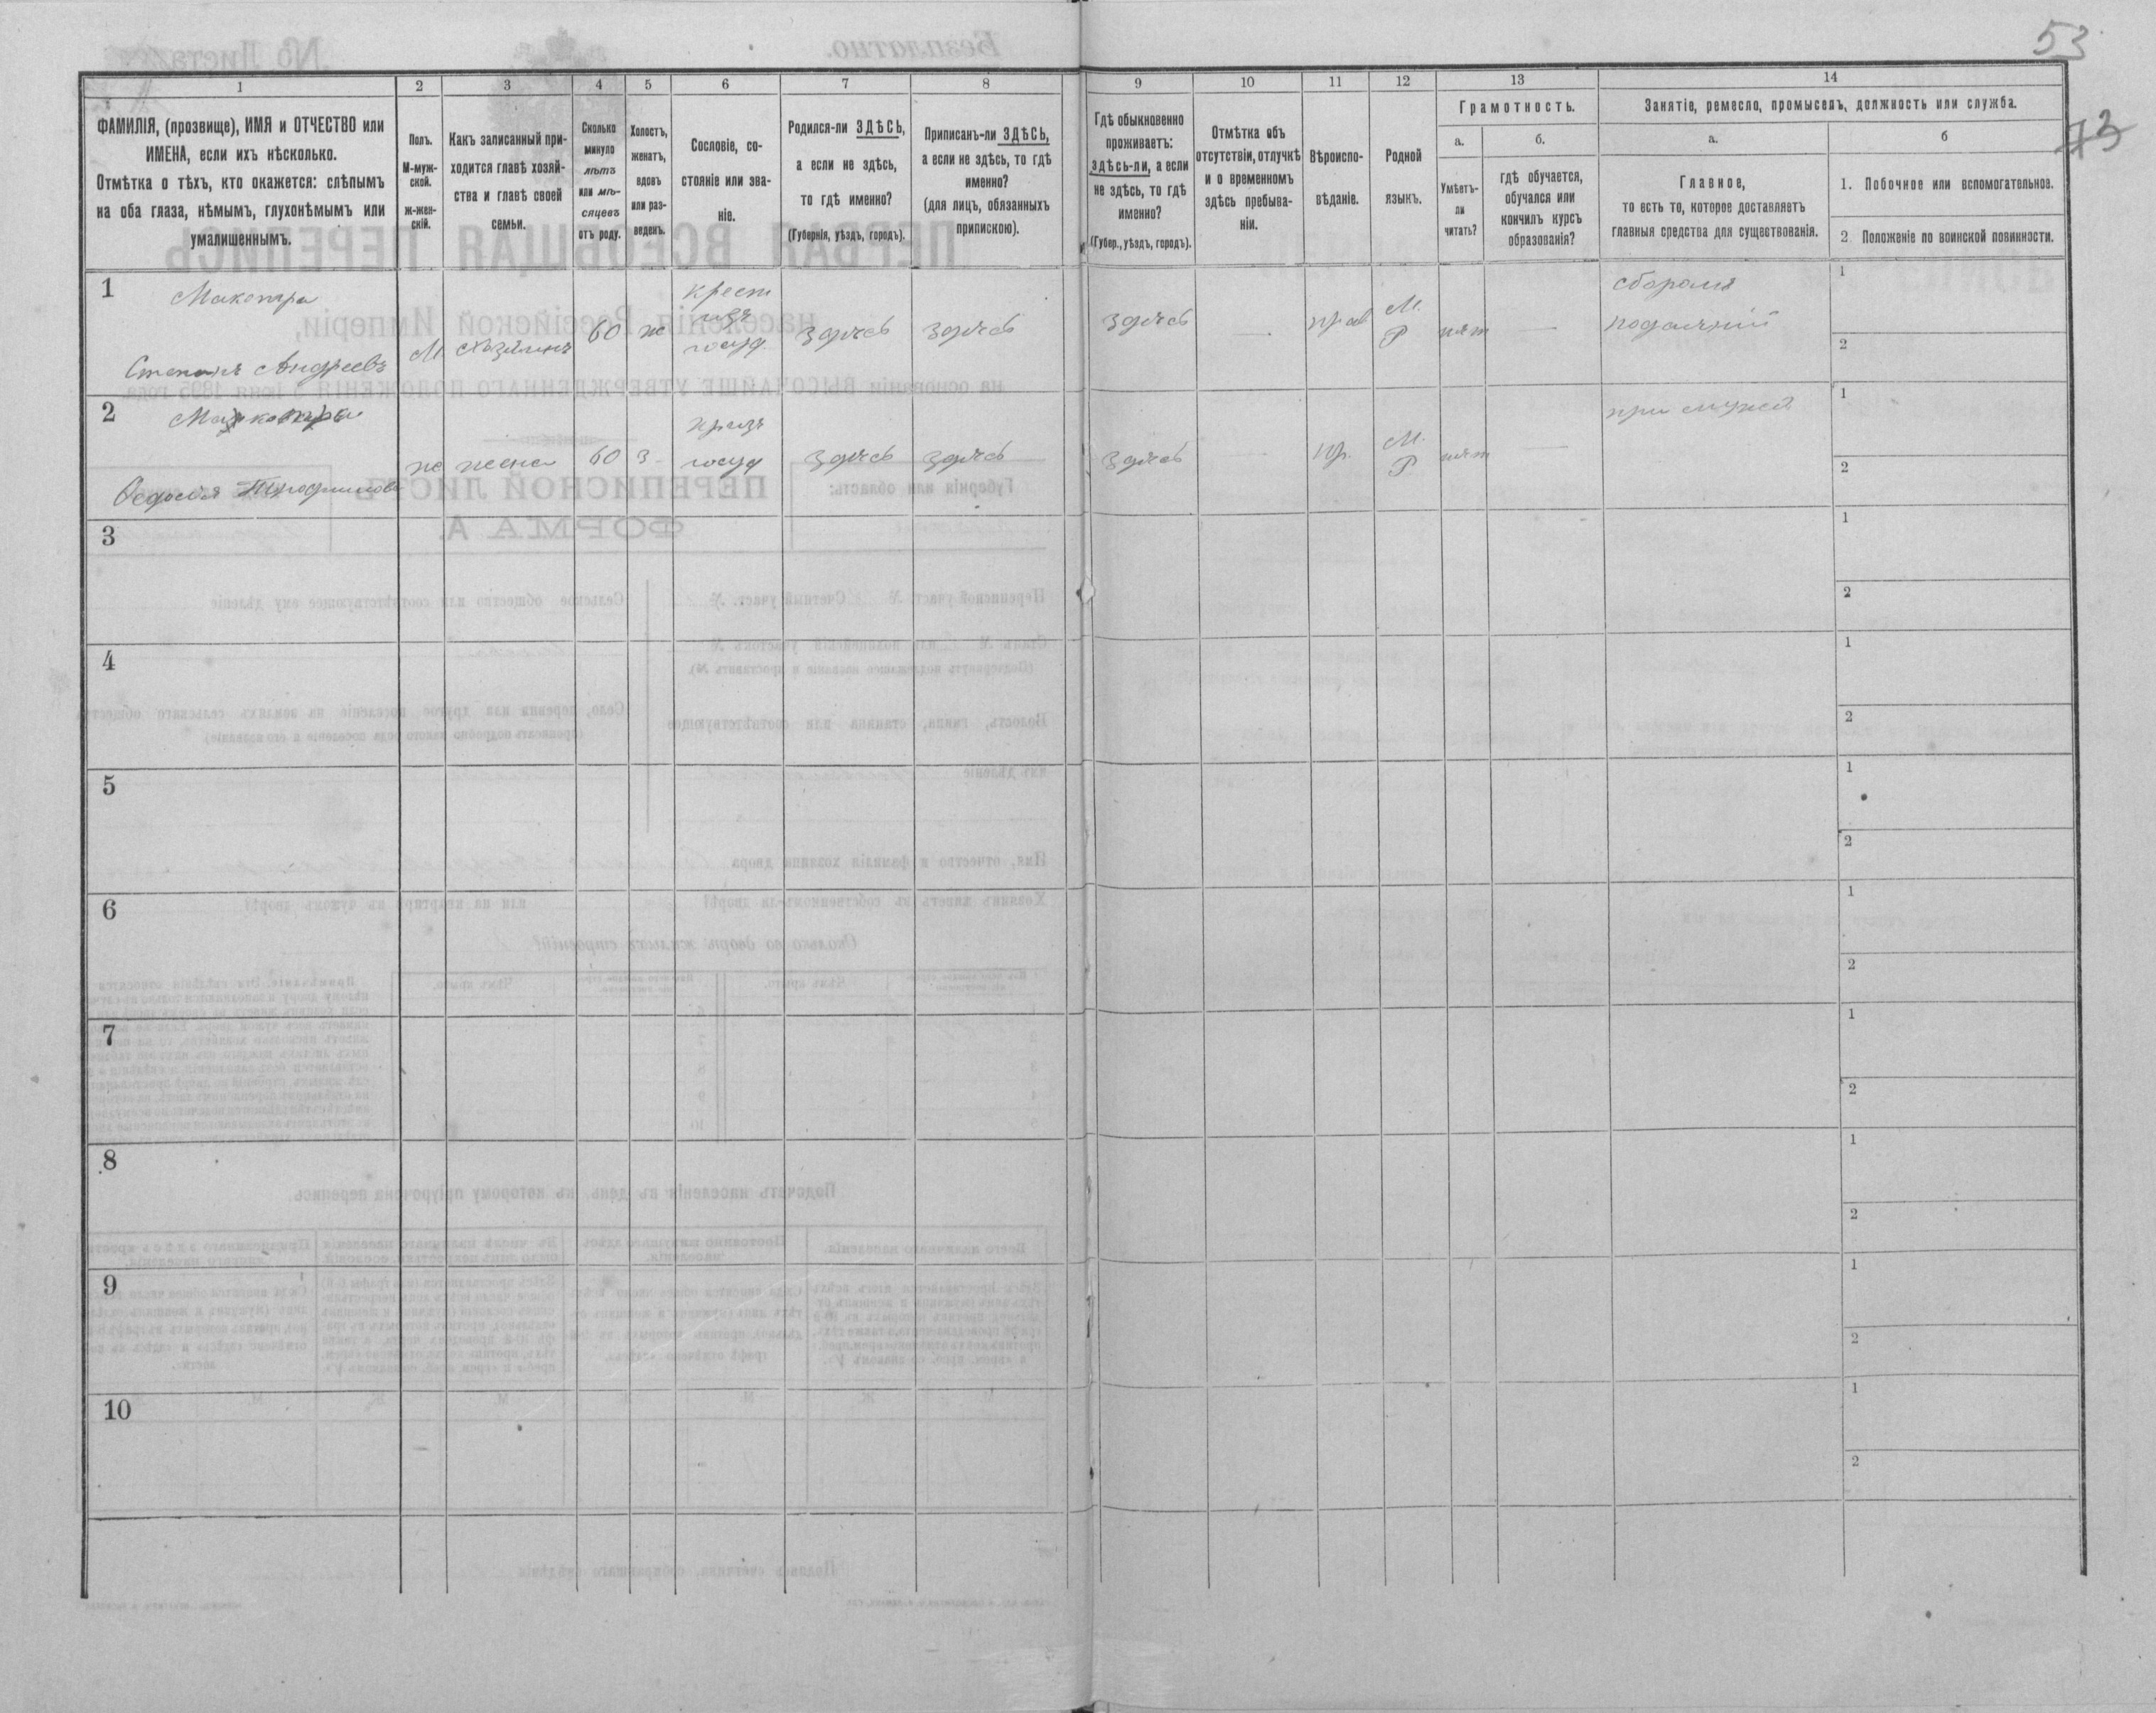 53
73
1
2
3
4
5
6
7
8
9
10
11
12
13
14
ФАМИЛІЯ, (прозвище), ИМЯ и ОТЧЕСТВО или
ИМЕНА, если ихъ нѣсколько.
Отмѣтка о тѣхъ, кто окажется: слѣпымъ
на оба глаза, нѣмымъ, глухонѣмымъ или
умалишеннымъ.
Полъ.
М-муж-
ской.
ж-жен-
скій.
Какъ записанный при-
ходится главѣ хозяй-
ства и главѣ своей
семьи.
Сколько
минуло
лѣтъ
или мѣ-
сяцевъ
отъ роду.
Холостъ,
женатъ,
вдовъ
или раз-
веденъ.
Сословіе, со-
стояніе или зва-
ніе.
Родился-ли ЗДѢСЬ,
а если не здѣсь,
то гдѣ именно?
(Губернія, уѣздъ, городъ).
Приписанъ-ли ЗДѢСЬ,
а если не здѣсь, то гдѣ
именно?
(для лицъ, обязанныхъ
припискою).
Гдѣ обыкновенно
проживаетъ:
здѣсь-ли, а если
не здѣсь, то гдѣ
именно?
(Губер., уѣздъ, городъ).
Отмѣтка объ
отсутствіи, отлучкѣ
и о временномъ
здѣсь пребыва-
ніи.
Вѣроиспо-
вѣданіе.
Родной
языкъ.
Грамотность.
а.
б.
Умѣетъ-
ли
читать?
гдѣ обучается,
обучался или
кончилъ курсъ
образованія?
Занятіе, ремесло, промыселъ, должность или служба.
а.
б
Главное,
то есть то, которое доставляетъ
главныя средства для существованія.
1. Побочное или вспомогательное.
2 Положеніе по воинской повинности.
1
Макотра
Степанъ Андреевъ
М
хозяинъ
60
ж
крест
изъ
госуд
здѣсь
здѣсь
здѣсь
—
прав
М.
Р
нѣт
—
сборомъ
подаяній
1
2
2
Федосія Трофимова
ж
жена
60
з
кр изъ
госуд
здѣсь
здѣсь
здѣсь
—
пр.
М.
Р
нѣт
—
при мужѣ
1
2
3
1
2
4
1
2
5
1
2
6
1
2
7
1
2
8
1
2
9
1
2
10
1
2